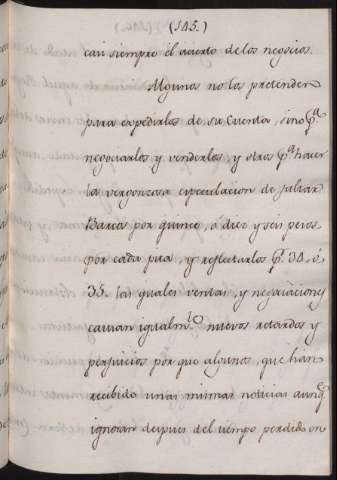 (145.)
can siempre el acierto de los negocios.
Algunos no los pretenden
para expedirlos de su Cuenta, sino pª
negociarlos y venderlos, y otros pª hacer
la vergonzosa especulacion de
Barcos por quince, ó diez y seis pesos
por cada, y refletarlos pr 30. ó
35. las quales ventas, y negociaciones
causan igualmte nuevos retardos y
perjuicios por que algunos, que han
recibido unas mismas noticias aunqe
ignoran despues del tiempo perdido en